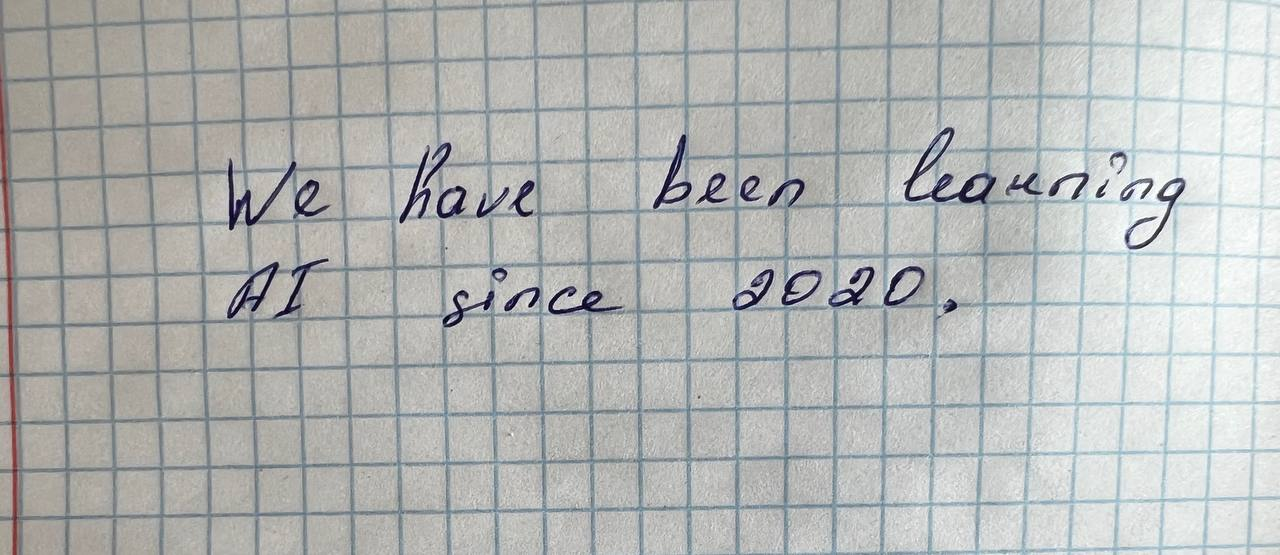 We have been learning
AI since 2020.